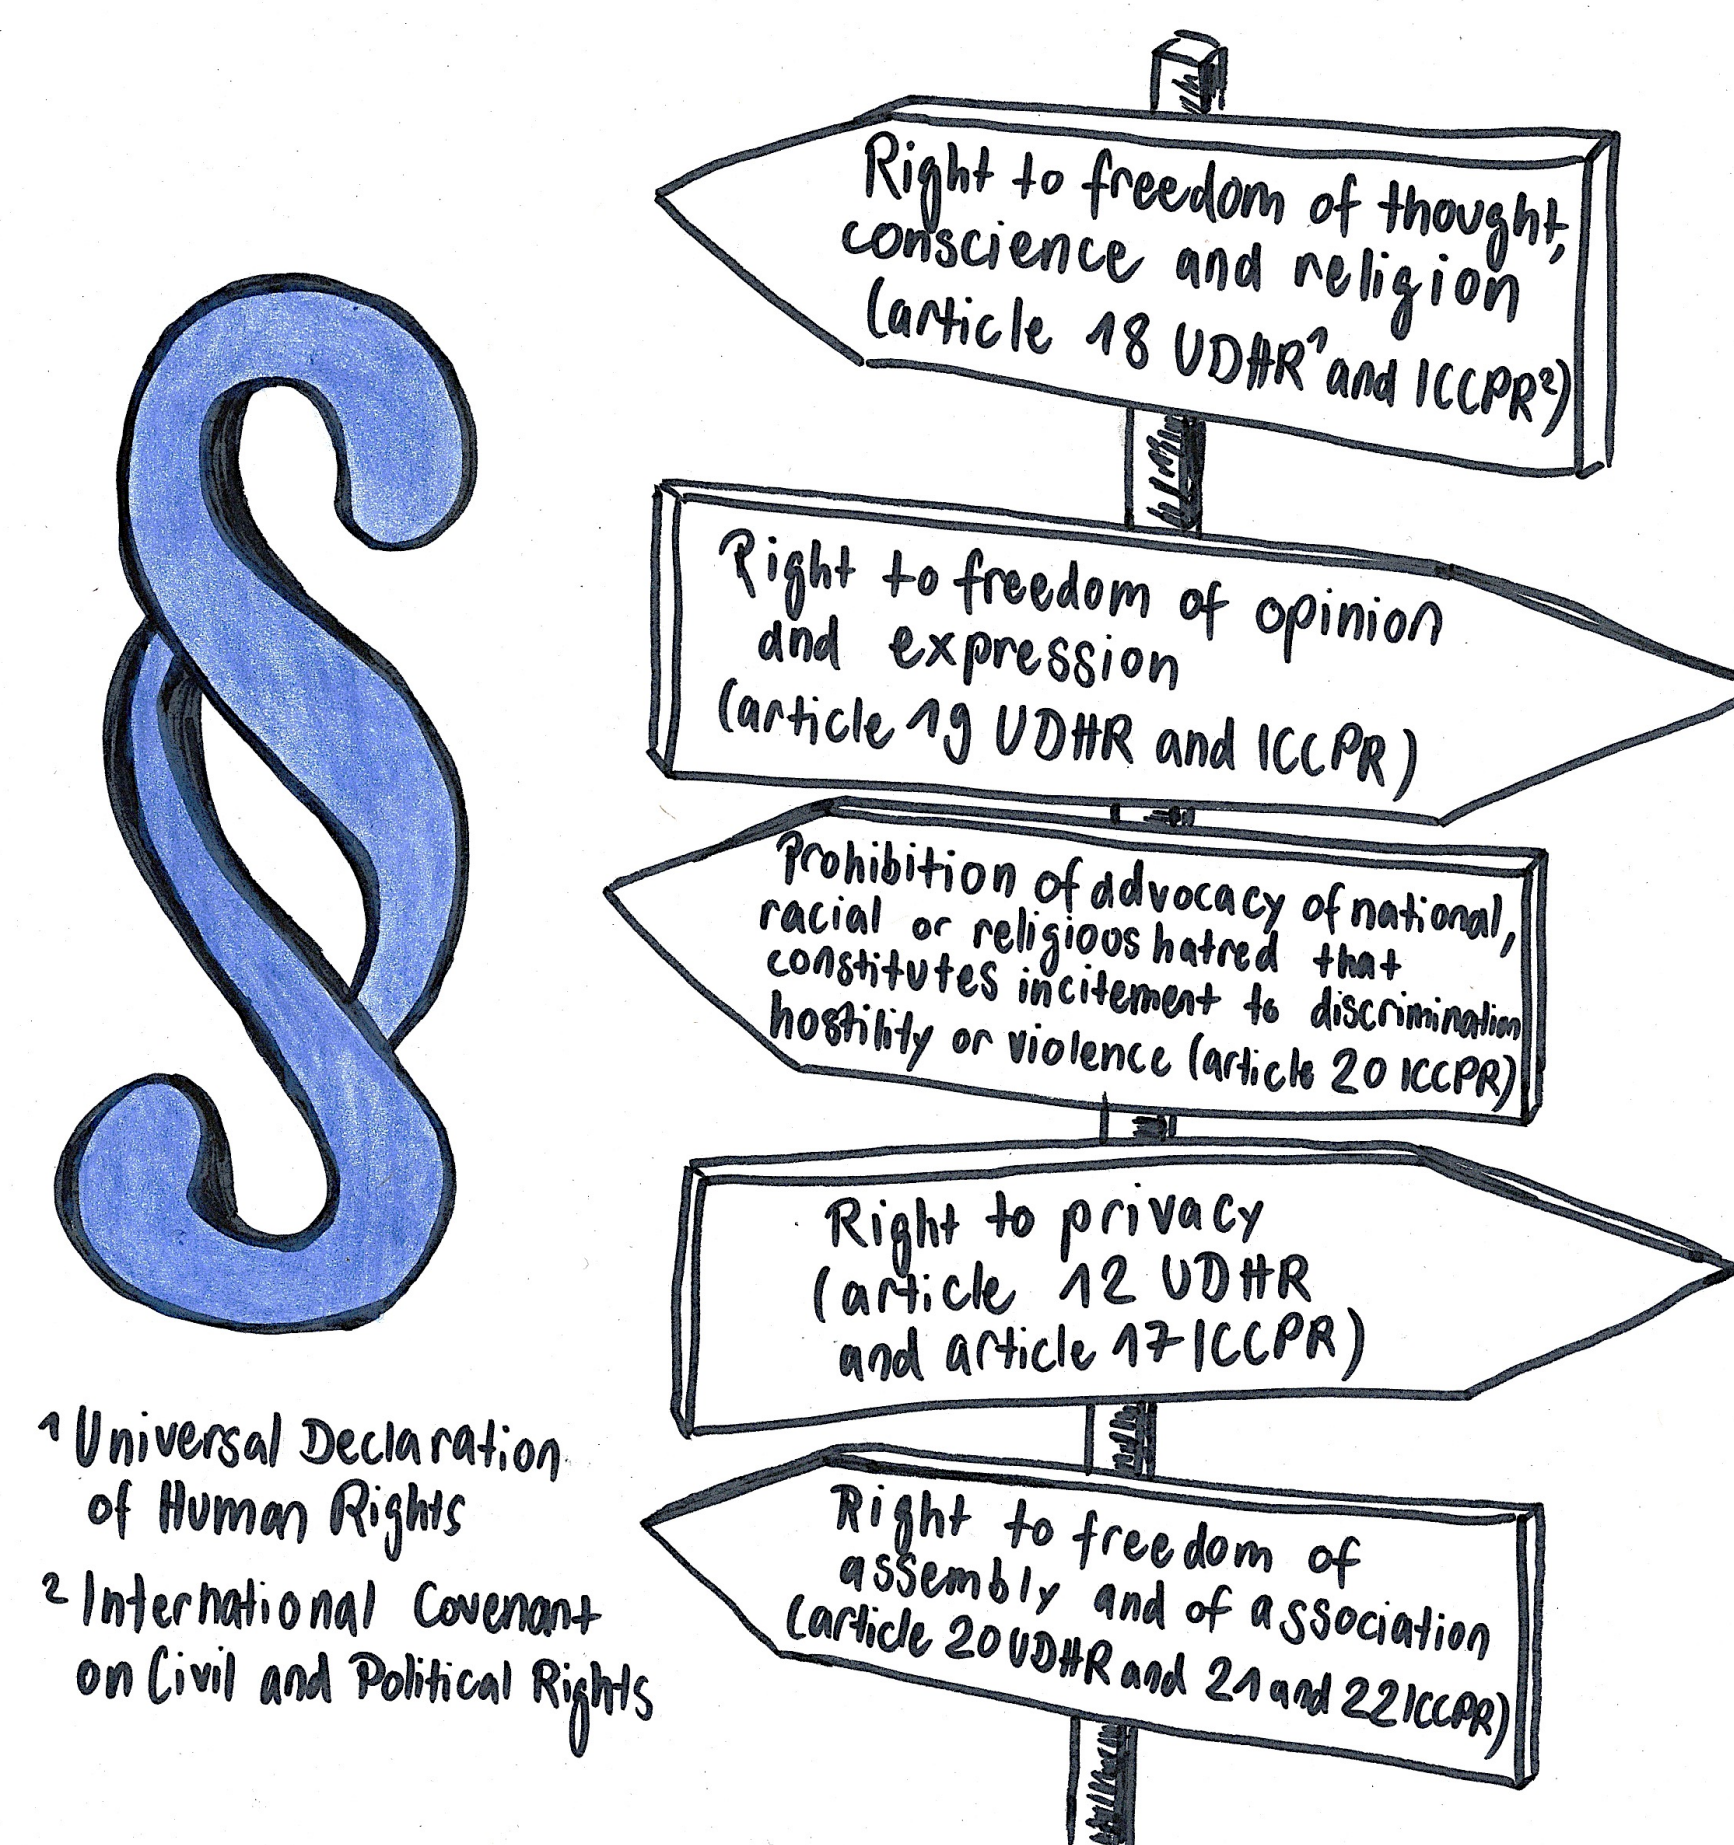 Right to freedom of thought,
conscience and religion
(article 18 UDHR¹ and ICCPR²)
Right to freedom of opinion
and expression
(article 19 UDHR and ICCPR)
Prohibition of advocacy of national,
racial or religious hatred that
constitutes incitement to discrimination
hostility or violence (article 20 ICCPR)
Right to privacy
(article 12 UDHR
and article 17 ICCPR)
Right to freedom of
assembly and of association
(article 20 UDHR and 21 and 22 ICCPR)
¹ Universal Declaration
of Human Rights
² International Covenant
on Civil and Political Rights